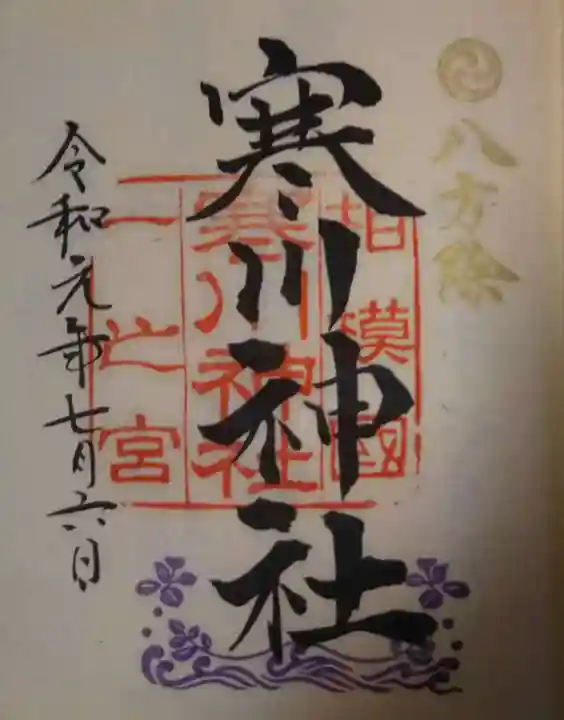 八方除
寒川神社
相模國
寒川神社
一之宮
令和元年七月六日